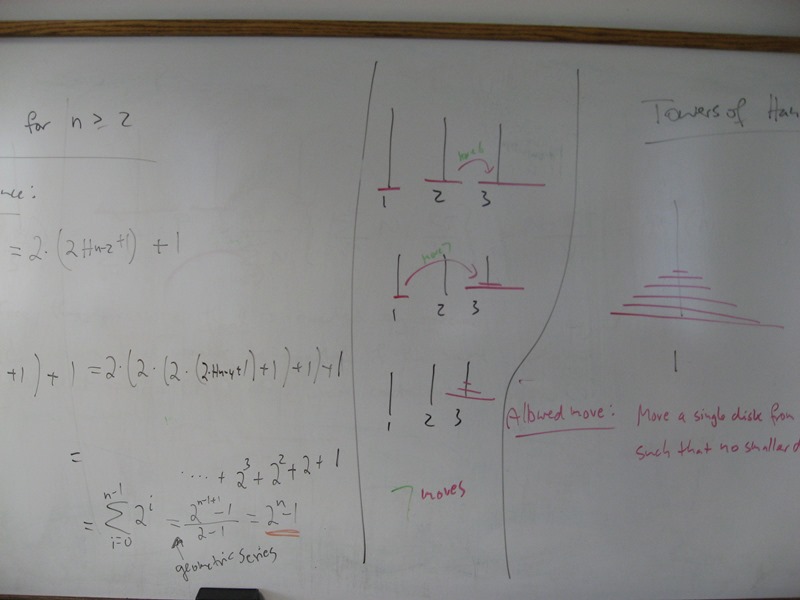 for n ≥ 2
= 2·(2Hn-2+1) + 1
+1) + 1 = 2·(2·(2·(2·Hn-4+1)+1)+1)+1
=
.... + 2³ + 2² + 2 + 1
= ∑ i=0 n-1 2^i = 2^(n-1+1) -1 / 2-1 = 2^n -1
geometric series
move 6
1 2 3
move 7
1 2 3
1 2 3
7 moves
Towers of Han
1
Allowed move: Move a single disk from
such that no smaller d